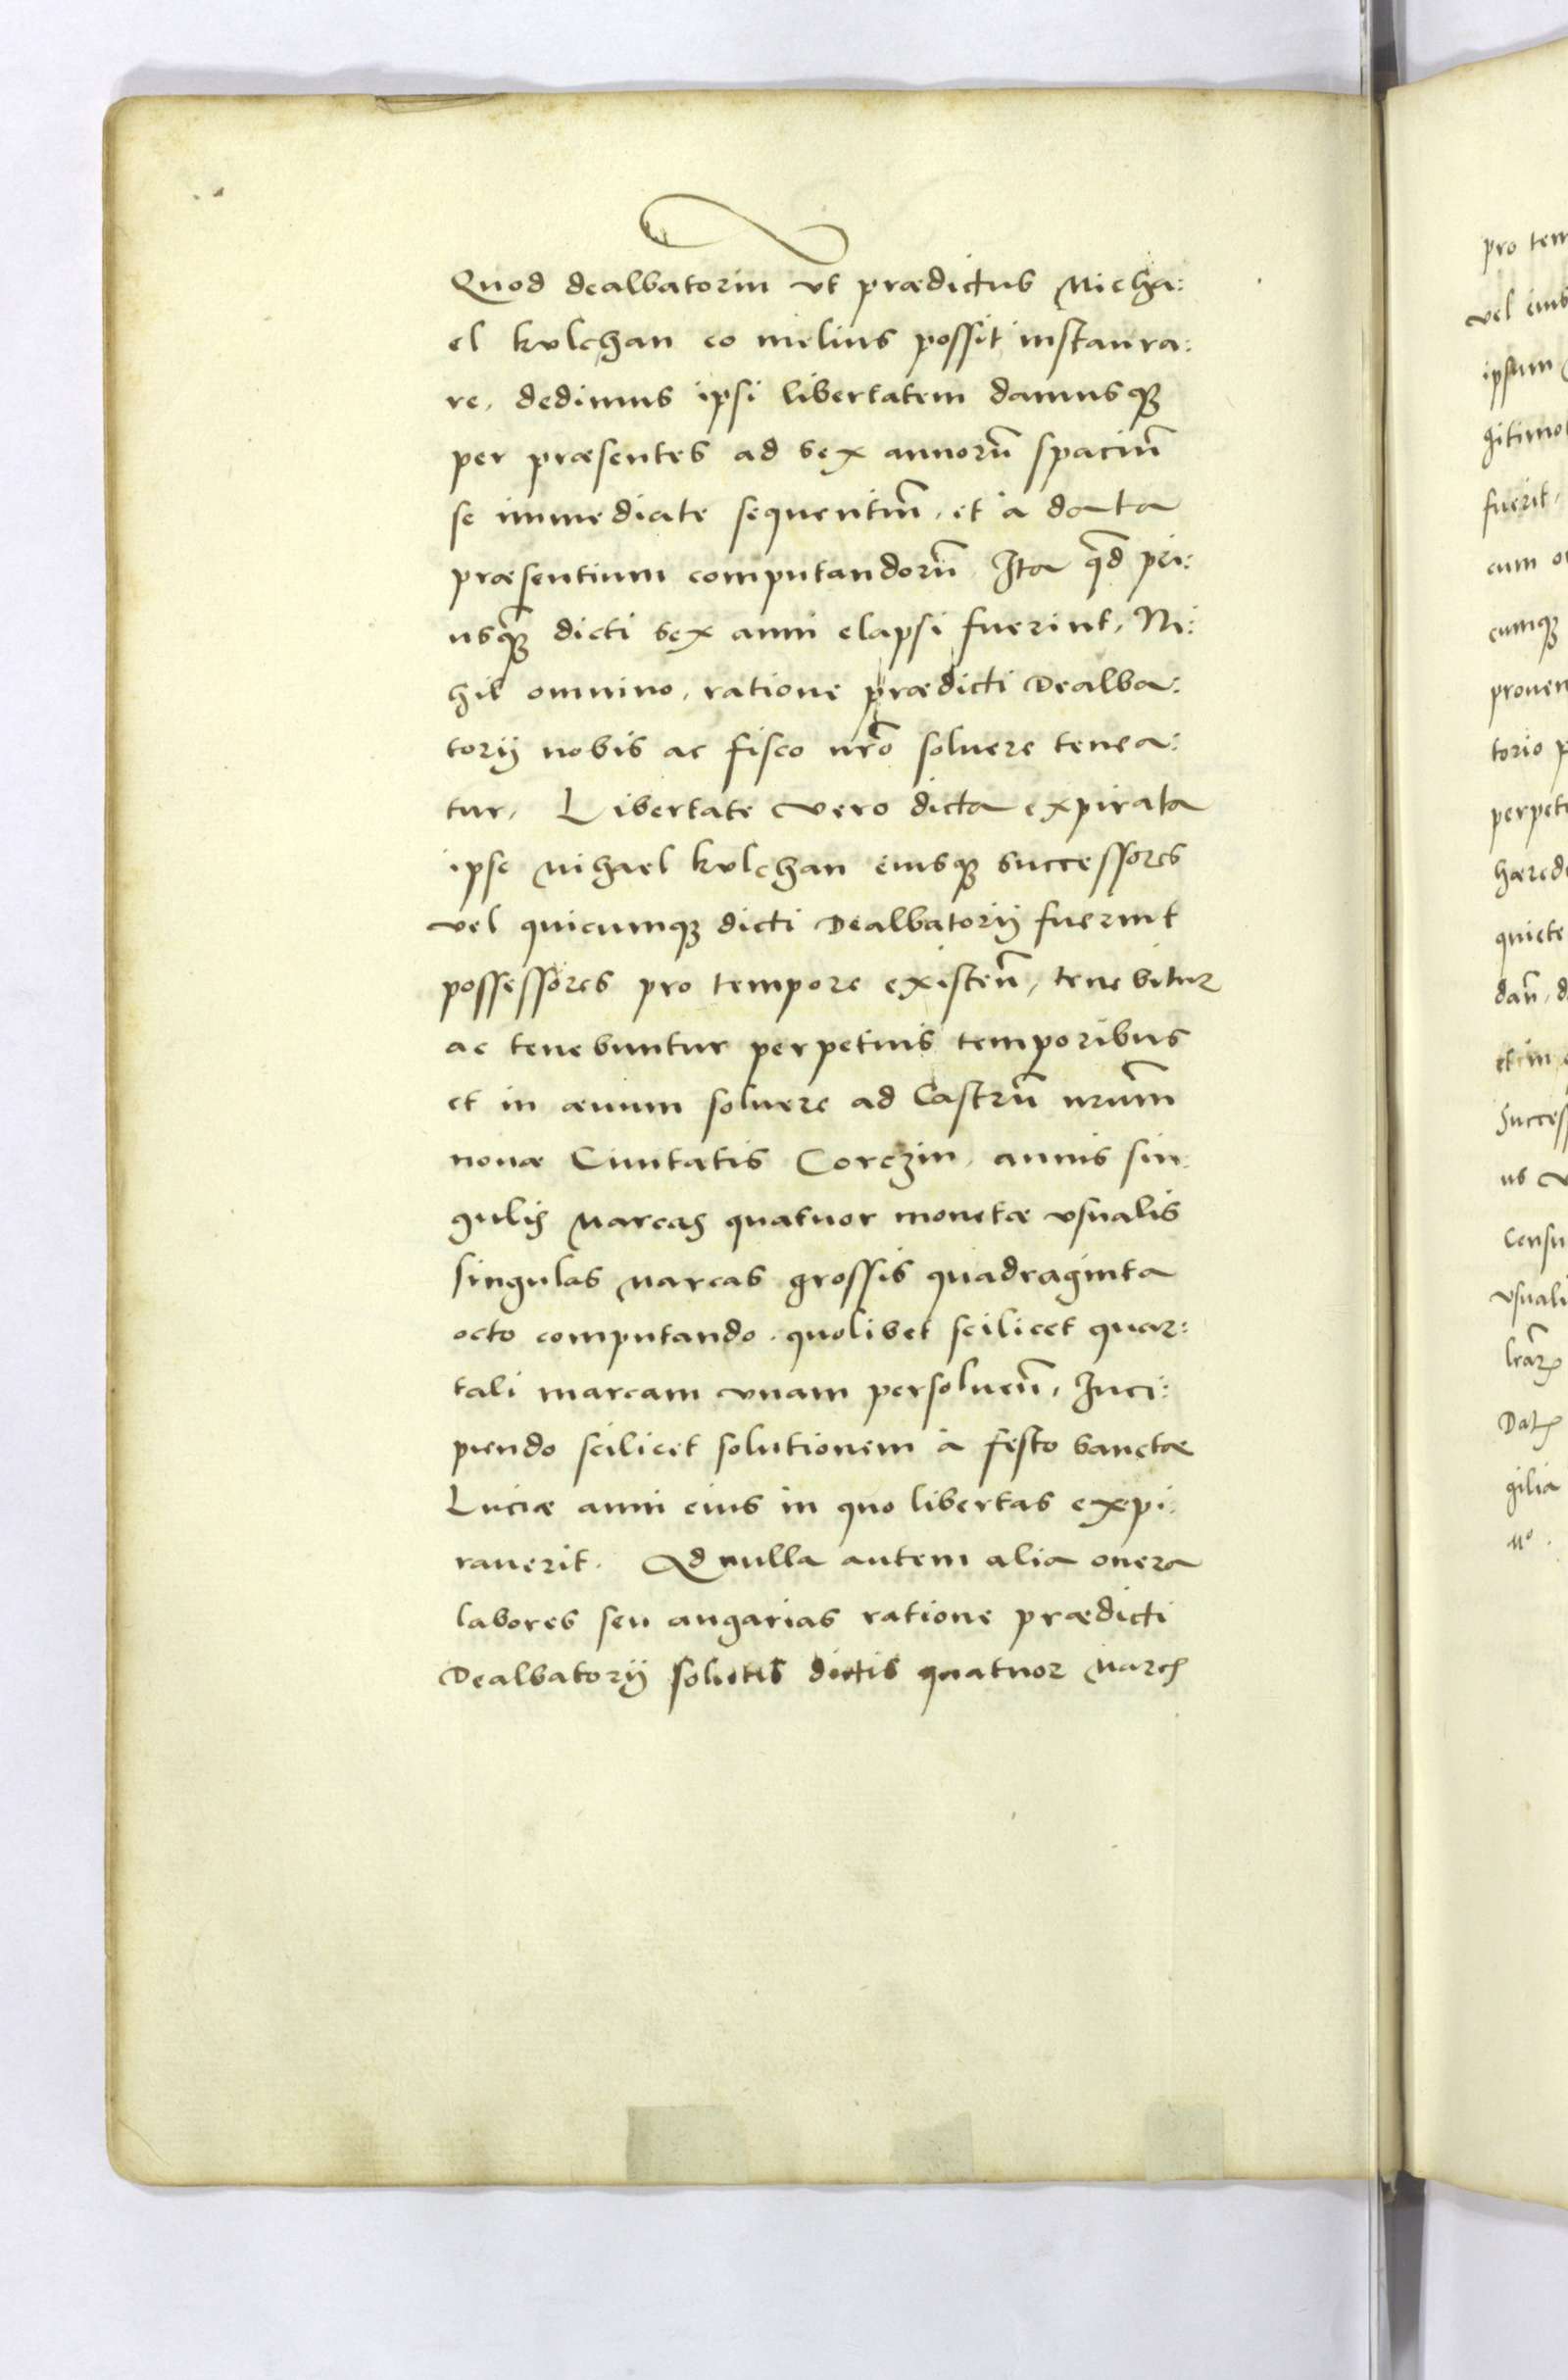 Quod dealbatorium ut prædictus Micha:
el Kulchan eo melius possit instaura:
re, dedimus ipsi libertatem damusq3
per præsentes ad sex annorū spaciū
se immediate sequentiū, et à data
præsentium computandorū, Ita qd pri:
usq3 dicti sex anni elapsi fuerint, Ni:
hil omnino, ratione prædicti Dealba:
torij nobis ac fisco nr̄o soluere tenea:
tur, Libertate vero dicta expirata
ipse Mihael Kulchan eiusq3 successores
vel quicumq3 dicti Dealbatorij fuerint
possessores pro tempore existeñ, tenebitur
ac tenebuntur perpetuis temporibus
et in æuum soluere ad Castrū nrūm
nouæ Ciuitatis Corczin, annis sin:
gulis Marcas quatuor monetæ vsualis
singulas Marcas grossis quadraginta
octo computando, quolibet scilicet quar:
tali marcam vnam persolueñ, Inci:
piendo scilicet solutionem à festo Sanctæ
Luciæ anni eius in quo libertas expi:
rauerit. Ad nulla autem alia onera
labores seu angarias ratione prædicti
Dealbatorij solutis dictis quatuor Marc
pro tem
vel eius
ipsum
gitimo
fuerit,
cum
cumq3
prouen
torio p
perpet
hæred
quiete
dañ, d
et in
Succes
us
Censu
vsuali
Dat
gilia